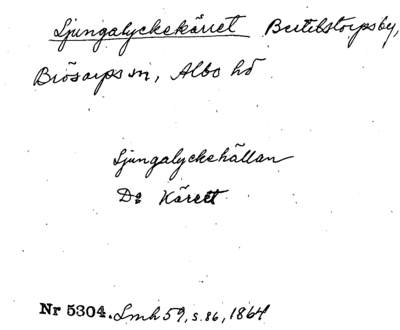 Ljungalyckekärret Bertilstorpsby,
Brösarps sn, Albo hd
Ljungalyckehällan
Do Kärett
Nr 5304. Lmh 59, s. 86, 1864